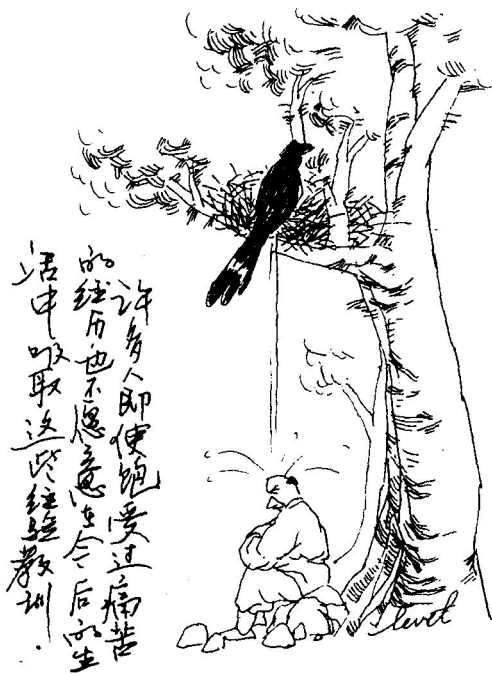 许多人即使饱受过痛苦
的经历也不愿意在今后的生
活中吸取这些经验教训．
levet